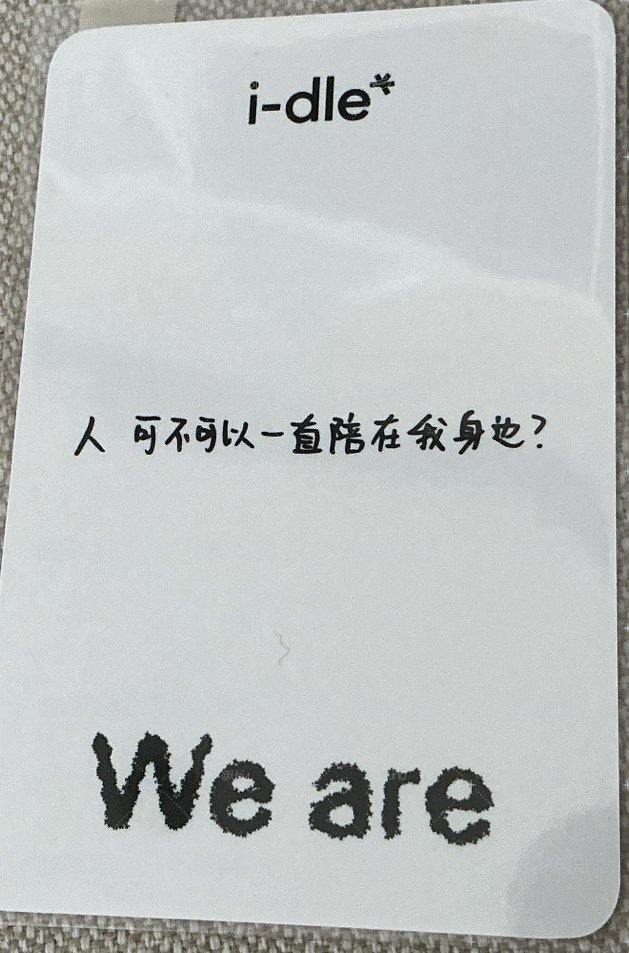 i-dle*
人 可不可以一直陪在我身边?
We are